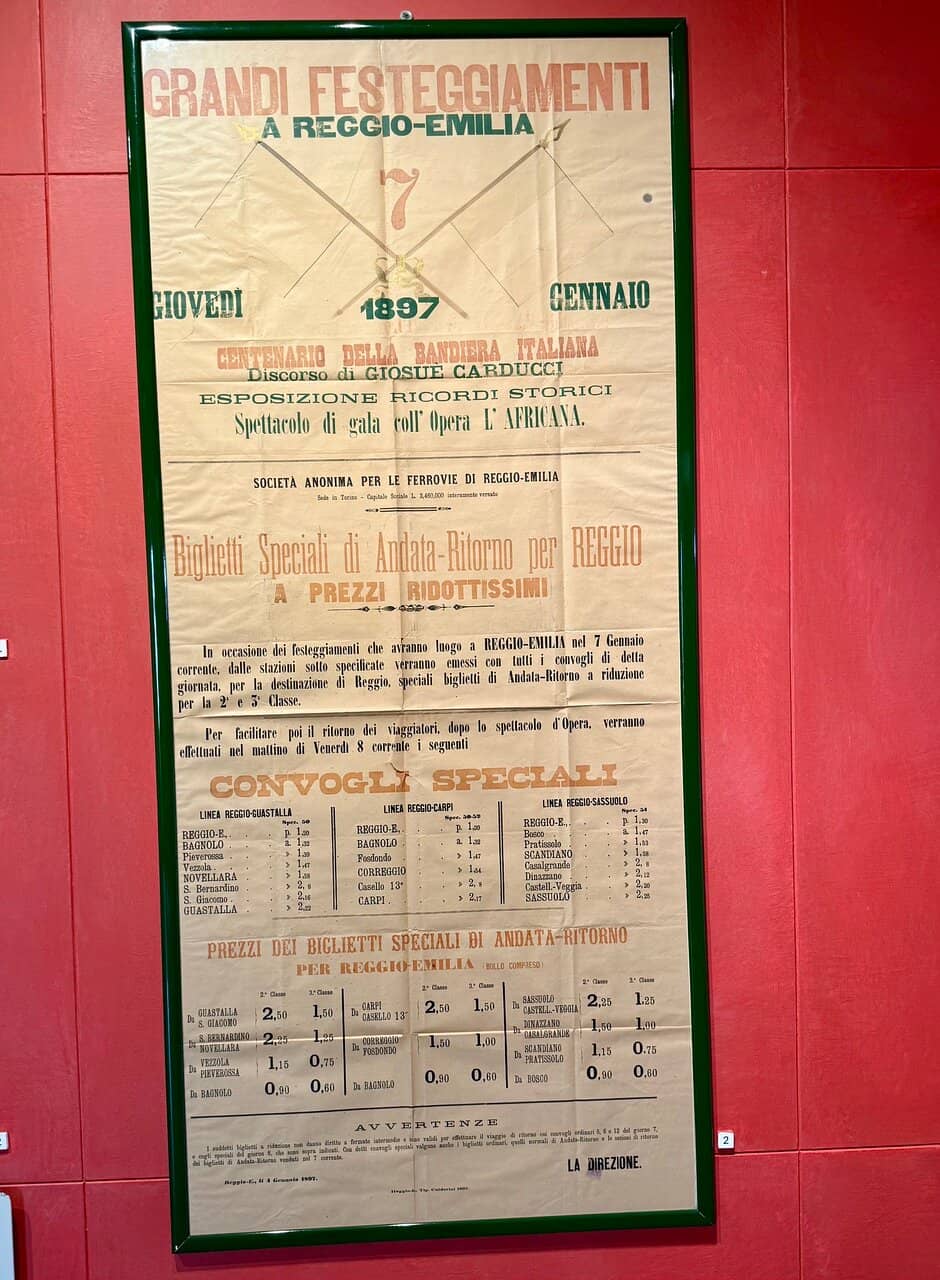 GRANDI FESTEGGIAMENTI
A REGGIO-EMILIA
7
GIOVEDÌ 1897 GENNAIO
CENTENARIO DELLA BANDIERA ITALIANA
Discorso di GIOSUE CARDUCCI
ESPOSIZIONE RICORDI STORICI
Spettacolo di gala coll' Opera L' AFRICANA.
SOCIETÀ ANONIMA PER LE FERROVIE DI REGGIO-EMILIA
Sede in Torino - Capitale Sociale L. 3,460,000 interamente versato
Biglietti Speciali di Andata-Ritorno per REGGIO
A PREZZI RIDOTTISSIMI
In occasione dei festeggiamenti che avranno luogo a REGGIO-EMILIA nel 7 Gennaio
corrente, dalle stazioni sotto specificate verranno emessi con tutti i convogli di detta
giornata, per la destinazione di Reggio, speciali biglietti di Andata-Ritorno a riduzione
per la 2ª e 3ª Classe.
Per facilitare poi il ritorno dei viaggiatori, dopo lo spettacolo d'Opera, verranno
effettuati nel mattino di Venerdì 8 corrente i seguenti
CONVOGLI SPECIALI
LINEA REGGIO-GUASTALLA
Spec. 50
REGGIO-E. . . p. 1,20
BAGNOLO . . a. 1,32
Pieverossa . . » 1,39
Vezzola . . » 1,47
NOVELLARA . . » 1,58
S. Bernardino . . » 2, 8
S. Giacomo . . » 2,16
GUASTALLA . . » 2,22
LINEA REGGIO-CARPI
Spec. 50-52
REGGIO-E. . . p. 1,20
BAGNOLO . . a. 1,32
Fosdondo . . » 1,47
CORREGGIO . . » 1,54
Casello 13º . . » 2, 8
CARPI . . » 2,17
LINEA REGGIO-SASSUOLO
Spec. 54
REGGIO-E. . . p. 1,30
Bosco . . a. 1,47
Pratissolo . . » 1,53
SCANDIANO . . » 1,58
Casalgrande . . » 2, 8
Dinazzano . . » 2,12
Castell.-Veggia . . » 2,20
SASSUOLO . . » 2,25
PREZZI DEI BIGLIETTI SPECIALI DI ANDATA-RITORNO
PER REGGIO-EMILIA (BOLLO COMPRESO)
2.ª Classe 3.ª Classe
Da GUASTALLA S. GIACOMO 2,50 1,50
Da S. BERNARDINO NOVELLARA 2,25 1,25
Da VEZZOLA PIEVEROSSA 1,15 0,75
Da BAGNOLO 0,90 0,60
2.ª Classe 3.ª Classe
Da CARPI CASELLO 13º 2,50 1,50
Da CORREGGIO FOSDONDO 1,50 1,00
Da BAGNOLO 0,90 0,60
2.ª Classe 3.ª Classe
Da SASSUOLO CASTELL.-VEGGIA 2,25 1,25
Da DINAZZANO CASALGRANDE 1,50 1,00
Da SCANDIANO PRATISSOLO 1,15 0,75
Da BOSCO 0,90 0,60
AVVERTENZE
I suddetti biglietti a riduzione non danno diritto a fermate intermedie e sono validi per effettuare il viaggio di ritorno coi convogli ordinari 5, 6 e 12 del giorno 7,
e cogli speciali del giorno 8, che sono sopra indicati. Con detti convogli speciali valgono anche i biglietti ordinari, quelli normali di Andata-Ritorno e le sezioni di ritorno
dei biglietti di Andata-Ritorno venduti nel 7 corrente.
LA DIREZIONE.
Reggio-E., li 4 Gennaio 1897.
Reggio-E., Tip. Calderini 1897.
2